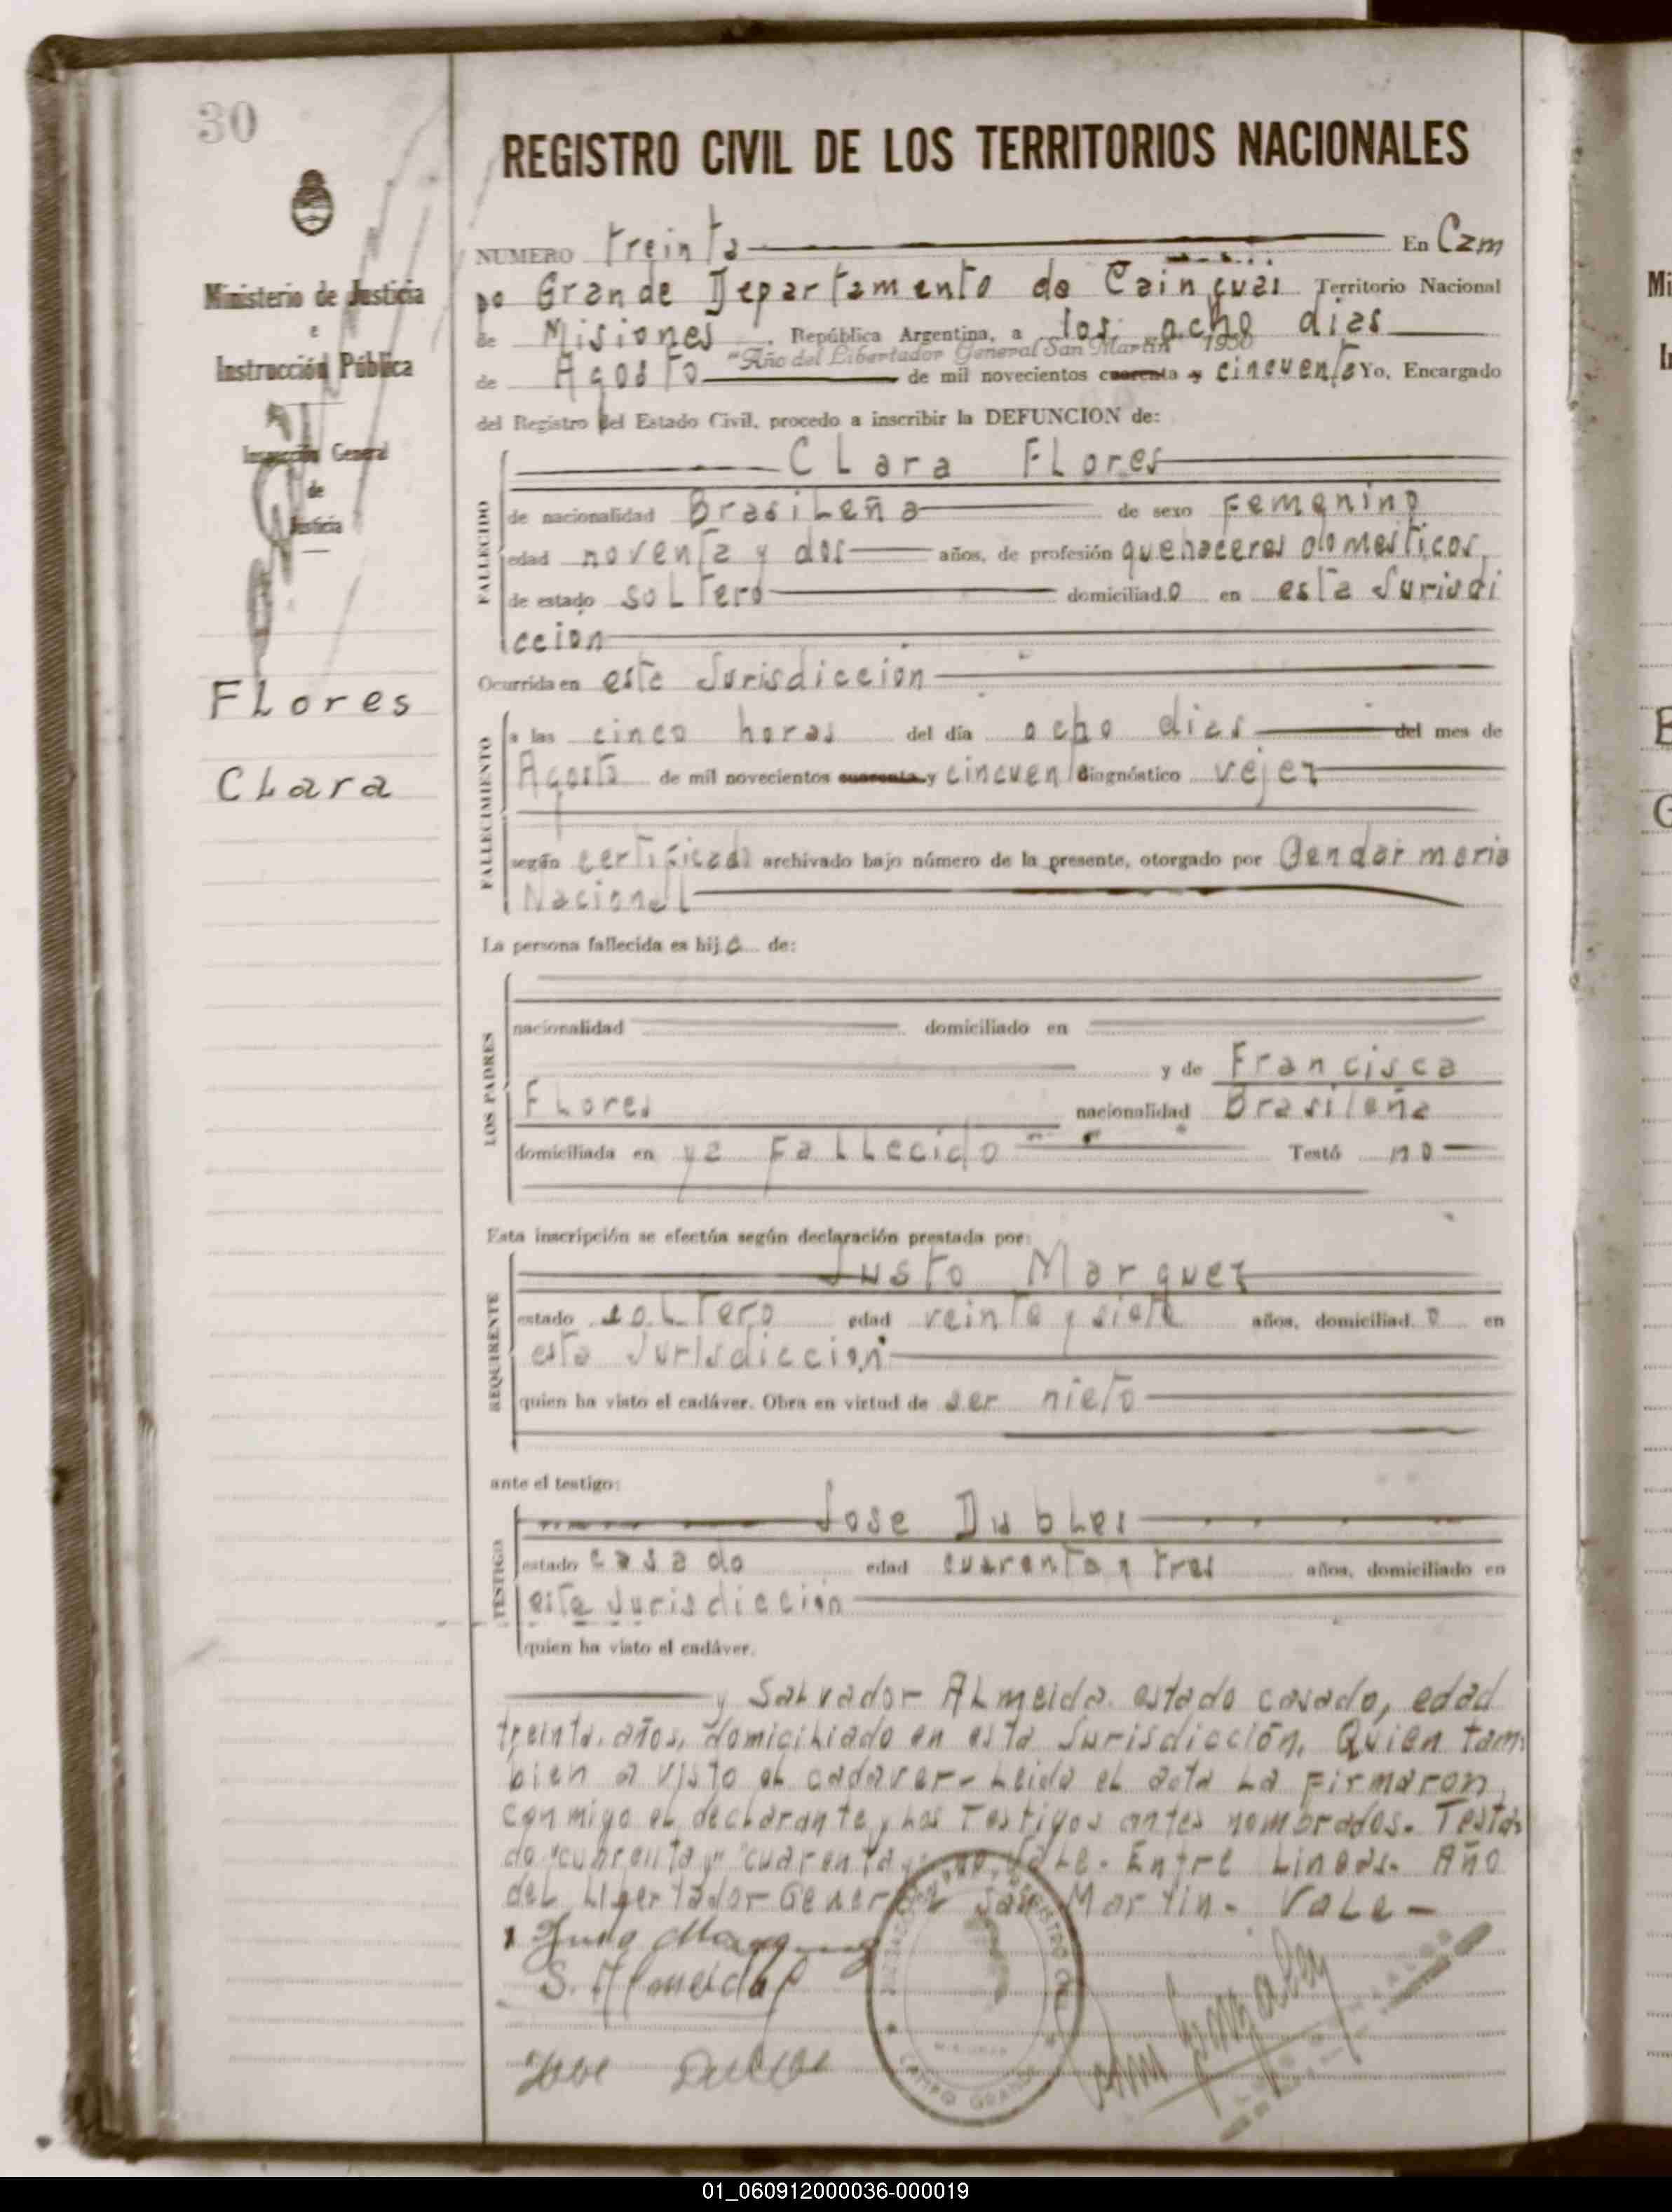 30
REGISTRO CIVIL DE LOS TERRITORIOS NACIONALES
Ministerio de Justicia
e
Instrucción Pública
Inspección General
de
Justicia
Flores
Clara
NUMERO treinta En Cam
po Grande Departamento de Cainguás Territorio Nacional
de Misiones República Argentina, a los ocho dias
"Año del Libertador General San Martín" 1950
de Agosto de mil novecientos cuarenta y cincuenta Yo, Encargado
del Registro del Estado Civil, procedo a inscribir la DEFUNCION de:
FALLECIDO
Clara Flores
de nacionalidad Brasileña de sexo Femenino
edad noventa y dos años, de profesión quehaceres domesticos,
de estado soltero domiciliado en esta Jurisdi
ccion
Ocurrida en este Jurisdiccion
FALLECIMIENTO
a las cinco horas del día ocho dias del mes de
Agosto de mil novecientos cuarenta y cincuenta diagnóstico vejez
según certificado archivado bajo número de la presente, otorgado por Gendarmeria
Nacional
La persona fallecida es hija de:
LOS PADRES
nacionalidad domiciliado en
y de Francisca
Flores nacionalidad Brasileña
domiciliada en ya Fallecido Testó no
Esta inscripción se efectúa según declaración prestada por:
REQUIRENTE
Justo Marquez
estado soltero edad veinte y siete años, domiciliado en
esta Jurisdiccion
quien ha visto el cadáver. Obra en virtud de ser nieto
ante el testigo:
TESTIGO
Jose Dubles
estado casado edad cuarenta y tres años, domiciliado en
esta Jurisdiccion
quien ha visto el cadáver.
y Salvador Almeida. estado casado, edad
treinta. años, domiciliado en esta Jurisdicción. Quien tam
bien a visto el cadaver- Leida el acta La Firmaron
conmigo el declarante y Los Testigos antes nombrados. Testa
do "cuarenta y" "cuarenta" no vale. Entre Lineas. Año
del Libertador General San Martin. Vale-
S. Almeida
Jose
REGISTRO CIVIL
CAMPO GRANDE
MISIONES
01_060912000036-000019